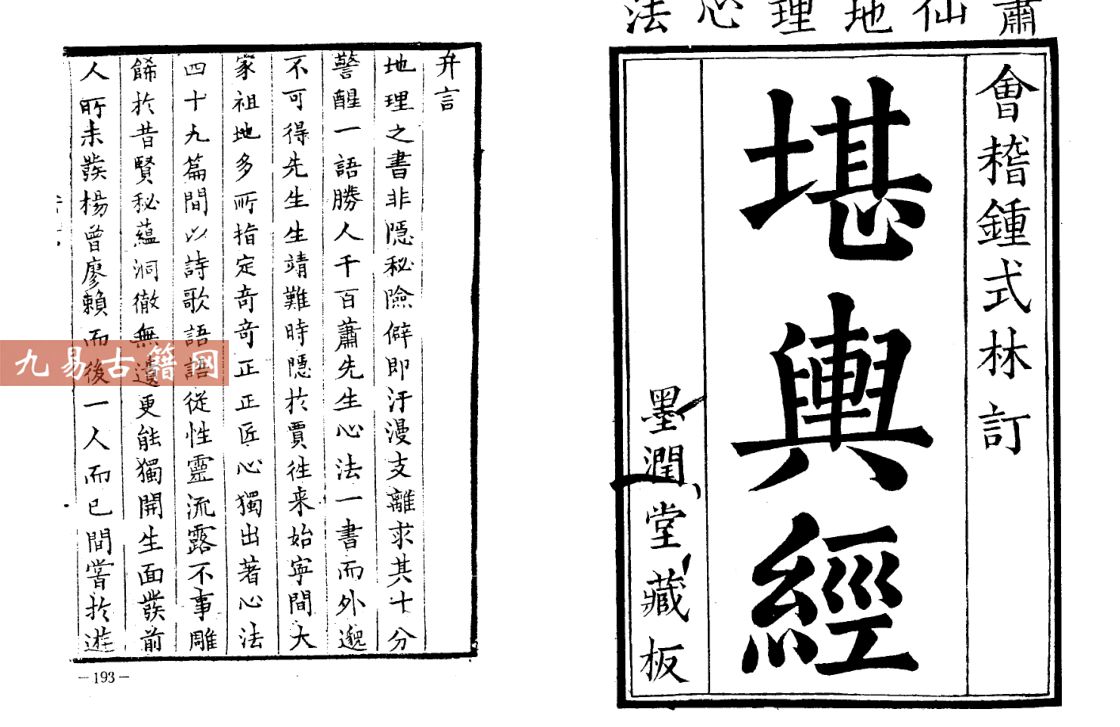 蕭仙地理心法
會稽鍾式林訂
堪輿經
墨潤堂藏板
弁言
地理之書非隱秘險僻即汗漫支離求其十分
警醒一語勝人千百蕭先生心法一書而外邈
不可得先生生靖難時隱於賈徃来始寧間大
家祖地多所指定奇奇正正匠心獨出著心法
四十九篇間以詩歌語語從性靈流露不事雕
餙於昔賢秘蘊洞徹無遺更能獨開生面發前
人所未發楊曾廖賴而後一人而已間嘗於遊
九易古籍网
—193—